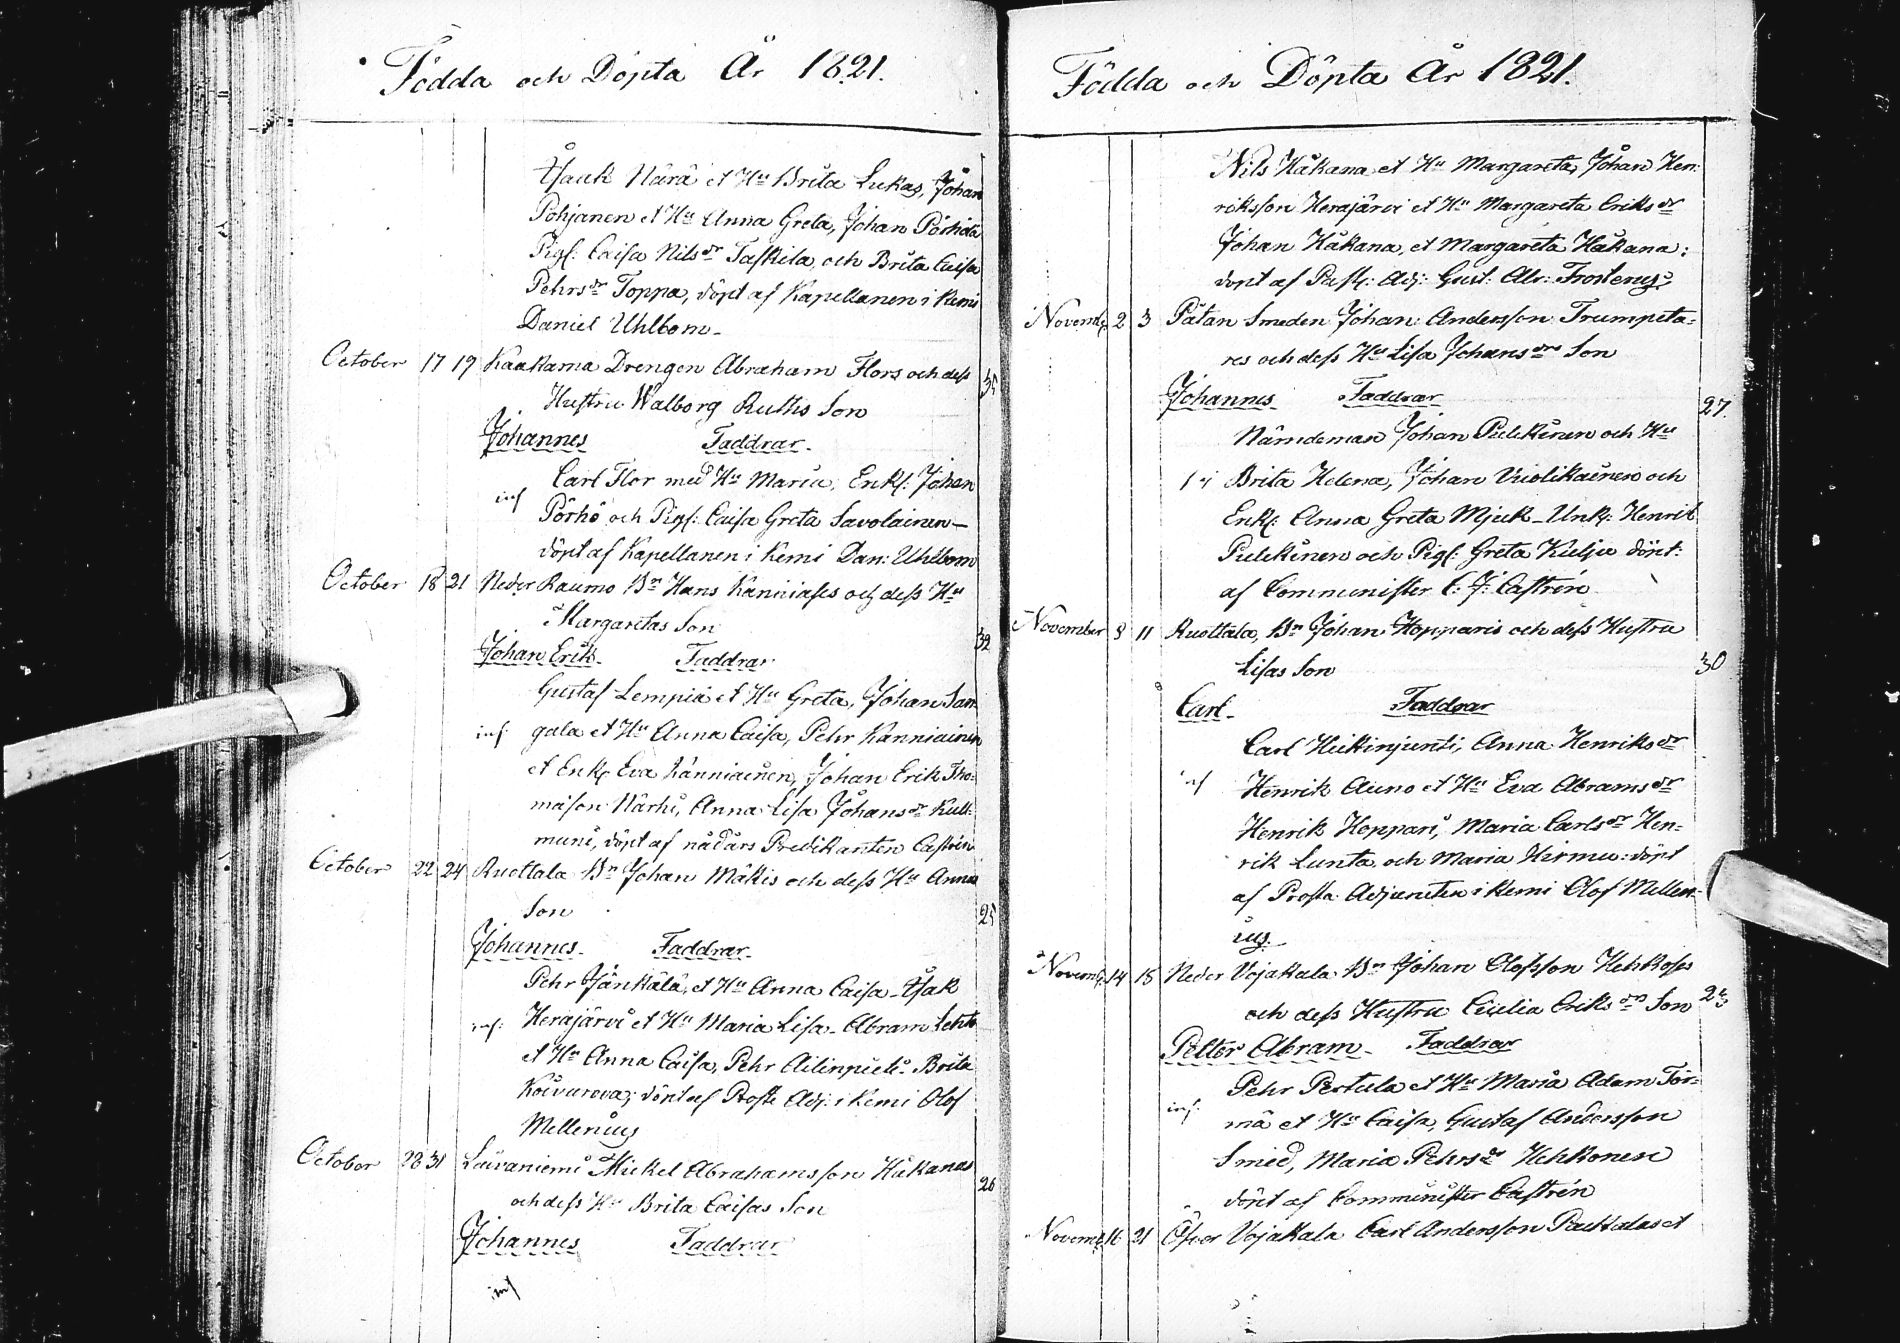 Födda och Döpta År 1821.
Isaak Närä et Hu Brita Lukas, Johan
Pohjanen et Hu Anna Greta, Johan Pörhölä
Pigs: Caisa Nilsdr Taskila, och Brita Caisa
Pehrsdr Toppa, döpt af Kapellanen i Kemi
Daniel Uhlbom
October 17 19 Kaakama Drengen Abraham Flors och dess 35
Hustru Walborg Ruths Son
Johannes Faddrar
Carl Flor med Hu Maria, Enkl: Johan
inf Pörhö och Pigs: Caisa Greta Savolainen
döpt af Kapellanen i Kemi Dan: Uhlbom
October 18 21 Neder Raumo Bn Hans Kanniaises och dess Hu
Margaretas Son 32
Johan Erik Faddrar
Gustaf Lempiä et Hu Greta, Johan San
inf gala et Hu Anna Caisa, Pehr Kanniainen
et Enk: Eva Kanniainen, Johan Erik Tho=
mason Närhi, Anna Lisa Johansdr Kult=
muni, döpt af nådårs Predikanten Castrén
October 22 24 Ruottala Bn Johan Mäkis och dess Hu Annas
Son 25
Johannes Faddrar
Pehr Jänkälä, et Hu Anna Caisa Isak
inf: Herajärvi et Hu Maria Lisa Abram Lehto
et Hu Anna Caisa, Pehr Ailinpieti Brita
Koivurova; döpt af Proste Adj: i Kemi Olof
Mellenius
October 28 31 Laivaniemi Mickel Abrahamsson Håkanas
och dess Hu Brita Caisas Son 26
Johannes Faddrar
inf
Födda och Döpta År 1821.
Nils Håkana et Hu Margareta, Johan Hen=
riksson Herajärvi et Hu Margareta Eriksdr
Johan Håkana, et Margareta Håkana:
döpt af Past: Adj: Gust: Alr: Frosterus
Novemb: 2 3 Pátan Smeden Johan Andersson Trumpeta=
res och dess Hu Lisa Johansdrs Son
Johannes Faddrar 27.
Nämdeman Johan Pulkkinen och Hu
Brita Helena, Johan Vuolikainen och
Enk: Anna Greta Mjuk Unk: Henrik
Pulkkinen och Pigs: Greta Kulju döpt:
af Comminister C: J: Castrén
November 8 11 Ruottala, Bn Johan Hopparis och dess Hustru
Lisas Son 30
Carl Faddrar
Carl Hiukinjunti, Anna Henriksdr
inf Henrik Auno et Hu Eva Abramsdr
Henrik Hoppari, Maria Carlsdr Hen=
rik Lunta, och Maria Hirmu: döpt
af Prosta Adjuncten i Kemi Olof Mellen=
ius.
Novemb: 14 18 Neder Vojakala Bn Johan Olofsson Hehkoses
och dess Hustru Cicilia Eriksdrs Son
Petter Abram Faddrar
Pehr Pertula et Hu Maria Adam Tör=
inf: mä et Hu Caisa, Gustaf Andersson
Smed, Maria Pehrsdr Hehkonen
döpt af Comminister Castrén
Novemb: 16 21 Öfver Vojakala Carl Andersson Paukalas et